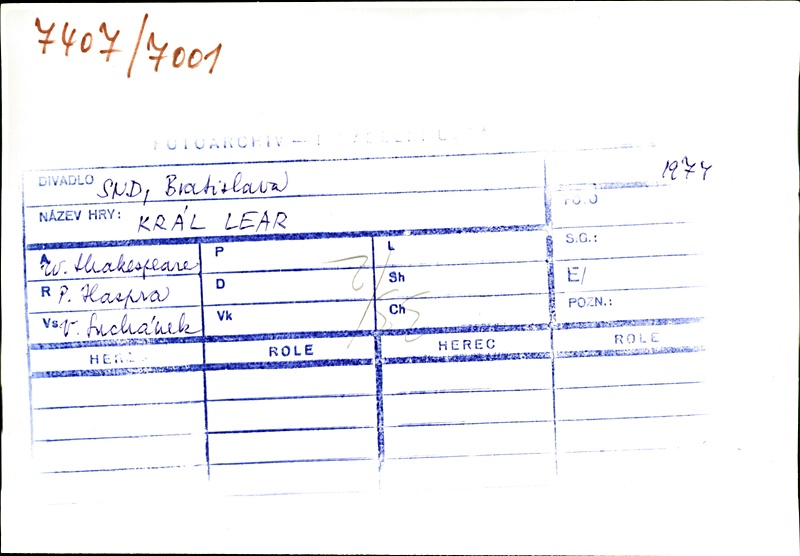 7407/7001
FOTOARCHIV
DIVADLO SND, Bratislava
NÁZEV HRY: KRÁL LEAR
A W. Shakespeare
R P. Haspra
Vs V. Suchánek
P
D
Vk
L
Sh
Ch
S.G.:
E/
POZN.:
HEREC ROLE HEREC ROLE